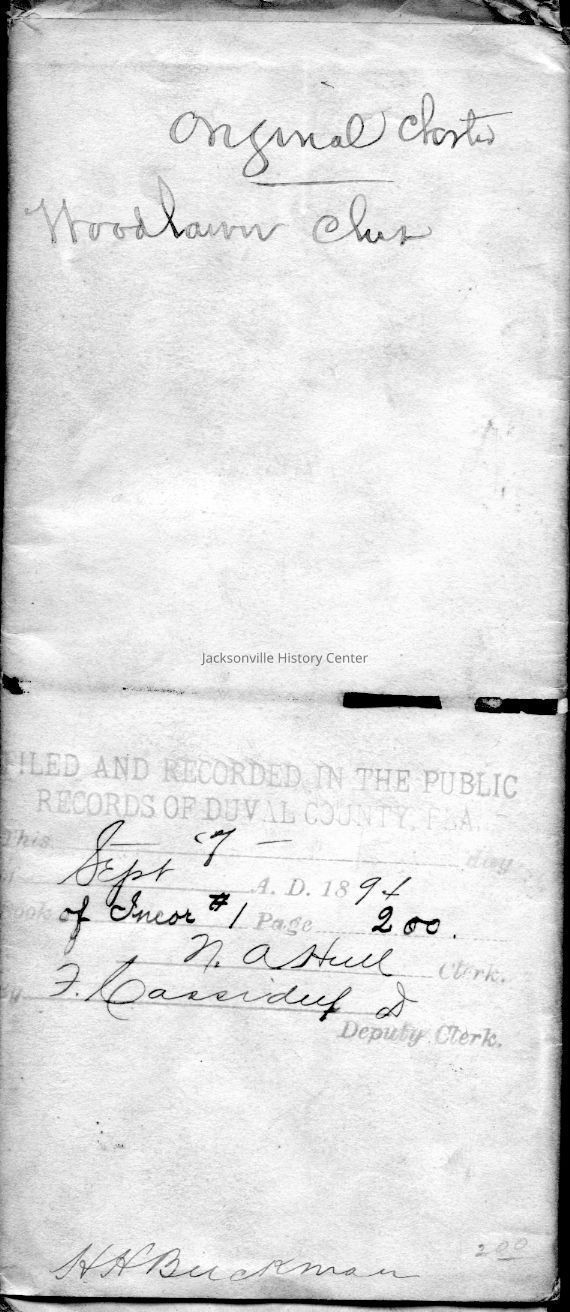 Original Charter
Woodlawn Club
Jacksonville History Center
FILED AND RECORDED IN THE PUBLIC
RECORDS OF DUVAL COUNTY, FLA.
This 7 day
Sept A. D. 1894
Book of Incor #1 Page 200.
N. A Hull Clerk.
By F. Cassidey D
Deputy Clerk.
200
HH Buckman